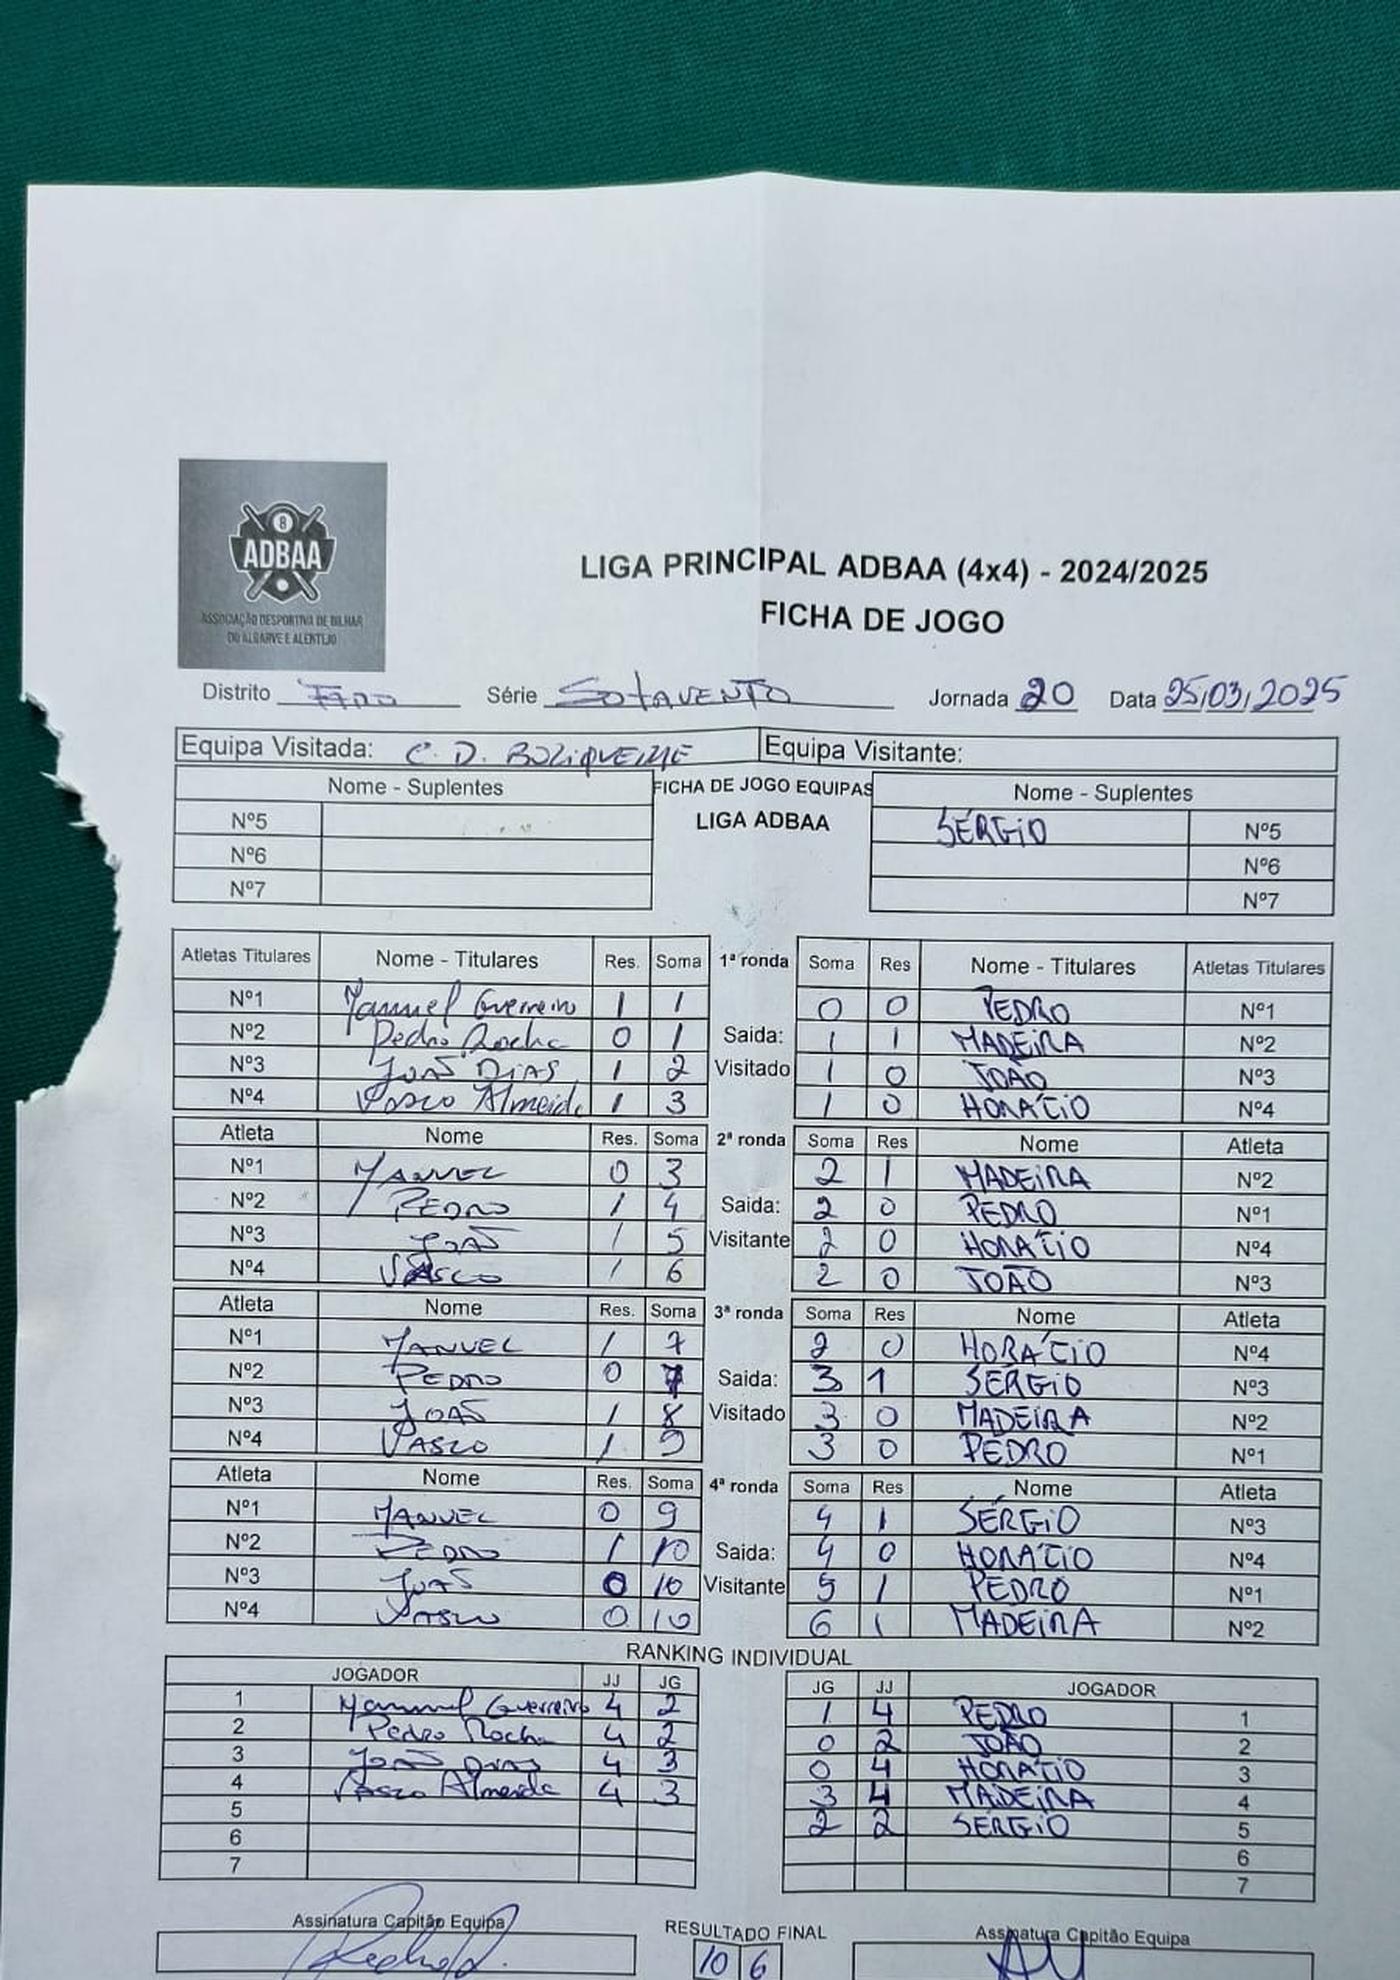 8
ADBAA
ASSOCIAÇÃO DESPORTIVA DE BILHAR
DO ALGARVE E ALENTEJO
LIGA PRINCIPAL ADBAA (4x4) - 2024/2025
FICHA DE JOGO
Distrito Série SOTAVENTO Jornada 20 Data 25/03/2025
Equipa Visitada: C. D. BOLIQUEIME Equipa Visitante:
Nome - Suplentes FICHA DE JOGO EQUIPAS Nome - Suplentes
Nº5 LIGA ADBAA SÉRGIO Nº5
Nº6 Nº6
Nº7 Nº7
Atletas Titulares Nome - Titulares Res. Soma 1ª ronda Soma Res Nome - Titulares Atletas Titulares
Nº1 Manuel Guerreiro 1 1 0 0 PEDRO Nº1
Nº2 Pedro Rocha 0 1 Saida: 1 1 MADEIRA Nº2
Nº3 JOÃO DIAS 1 2 Visitado 1 0 JOÃO Nº3
Nº4 Vasco Almeida 1 3 1 0 HORÁCIO Nº4
Atleta Nome Res. Soma 2ª ronda Soma Res Nome Atleta
Nº1 MANUEL 0 3 2 1 MADEIRA Nº2
Nº2 PEDRO 1 4 Saida: 2 0 PEDRO Nº1
Nº3 JOÃO 1 5 Visitante 2 0 HORÁCIO Nº4
Nº4 VASCO 1 6 2 0 JOÃO Nº3
Atleta Nome Res. Soma 3ª ronda Soma Res Nome Atleta
Nº1 MANUEL 1 7 2 0 HORÁCIO Nº4
Nº2 PEDRO 0 7 Saida: 3 1 SÉRGIO Nº3
Nº3 JOÃO 1 8 Visitado 3 0 MADEIRA Nº2
Nº4 VASCO 1 9 3 0 PEDRO Nº1
Atleta Nome Res. Soma 4ª ronda Soma Res Nome Atleta
Nº1 MANUEL 0 9 4 1 SÉRGIO Nº3
Nº2 PEDRO 1 10 Saida: 4 0 HORÁCIO Nº4
Nº3 JOÃO 0 10 Visitante 5 1 PEDRO Nº1
Nº4 VASCO 0 10 6 1 MADEIRA Nº2
RANKING INDIVIDUAL
JOGADOR JJ JG JG JJ JOGADOR
1 Manuel Guerreiro 4 2 1 4 PEDRO 1
2 Pedro Rocha 4 2 0 2 JOÃO 2
3 JOÃO DIAS 4 3 0 4 HORÁCIO 3
4 Vasco Almeida 4 3 3 4 MADEIRA 4
5 2 2 SÉRGIO 5
6 6
7 7
Assinatura Capitão Equipa RESULTADO FINAL Assinatura Capitão Equipa
10 6